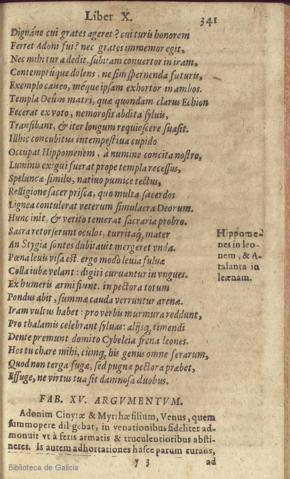 Liber X. 341
Dignáne cui grates ageret? cui turis honorem
Ferret Adoni fui? nec grates immemor egit,
Nec mihi tura dedit. subitam convertor in iram,
Contemptúque dolens, ne sim spernenda futuris,
Exemplo caveo, meque ipsam exhortor in ambos.
Templa Deûm matri, quæ quondam clarus Echion
Fecerat ex voto, nemorosis abdita sylvis,
Transibant, & iter longum requiescere suasit.
Illhic concubitus intempestiva cupido
Occupat Hippomenem, à numine concita nostro,
Luminis exigui fuerat prope templa recessus,
Speluncæ similis, nativo pumice tectus,
Relligione sacer prisca, quo multa sacerdos
Lignea contulerat veterum simulacra Deorum.
Hunc init, & vetito temerat sacraria probro.
Sacra retorserunt oculos, turritaq; mater
An Stygia sontes dubitavit mergeret unda.
Pœna levis visa est. ergo modò levia fulvæ
Colla iubæ velant: digiti curvantur in ungues.
Ex humeris armi fiunt. in pectora totum
Pondus abit, summæ cauda verruntur arenæ.
Iram vultus habet: pro verbis murmura reddunt,
Pro thalamis celebrant sylvas: aliisq; timendi
Dente premunt domito Cybeleia frena leones.
Hos tu chare mihi, cumq; his genus omne ferarum,
Quod non terga fugæ, sed pugnæ pectora præbet,
Effuge, ne virtus tua sit damnosa duobus.
Hippome-
nes in leo-
nem, & A-
talanta in
leænam.
FAB. XV. ARGVMENTVM.
Adonim Cinyræ & Myrrhæ filium, Venus, quem
summopere diligebat, in venationibus fideliter ad-
monuit vt à feris armatis & truculentioribus absti-
neret. Is autem adhortationes hasce parum curans,
y 3 ad
Biblioteca de Galicia